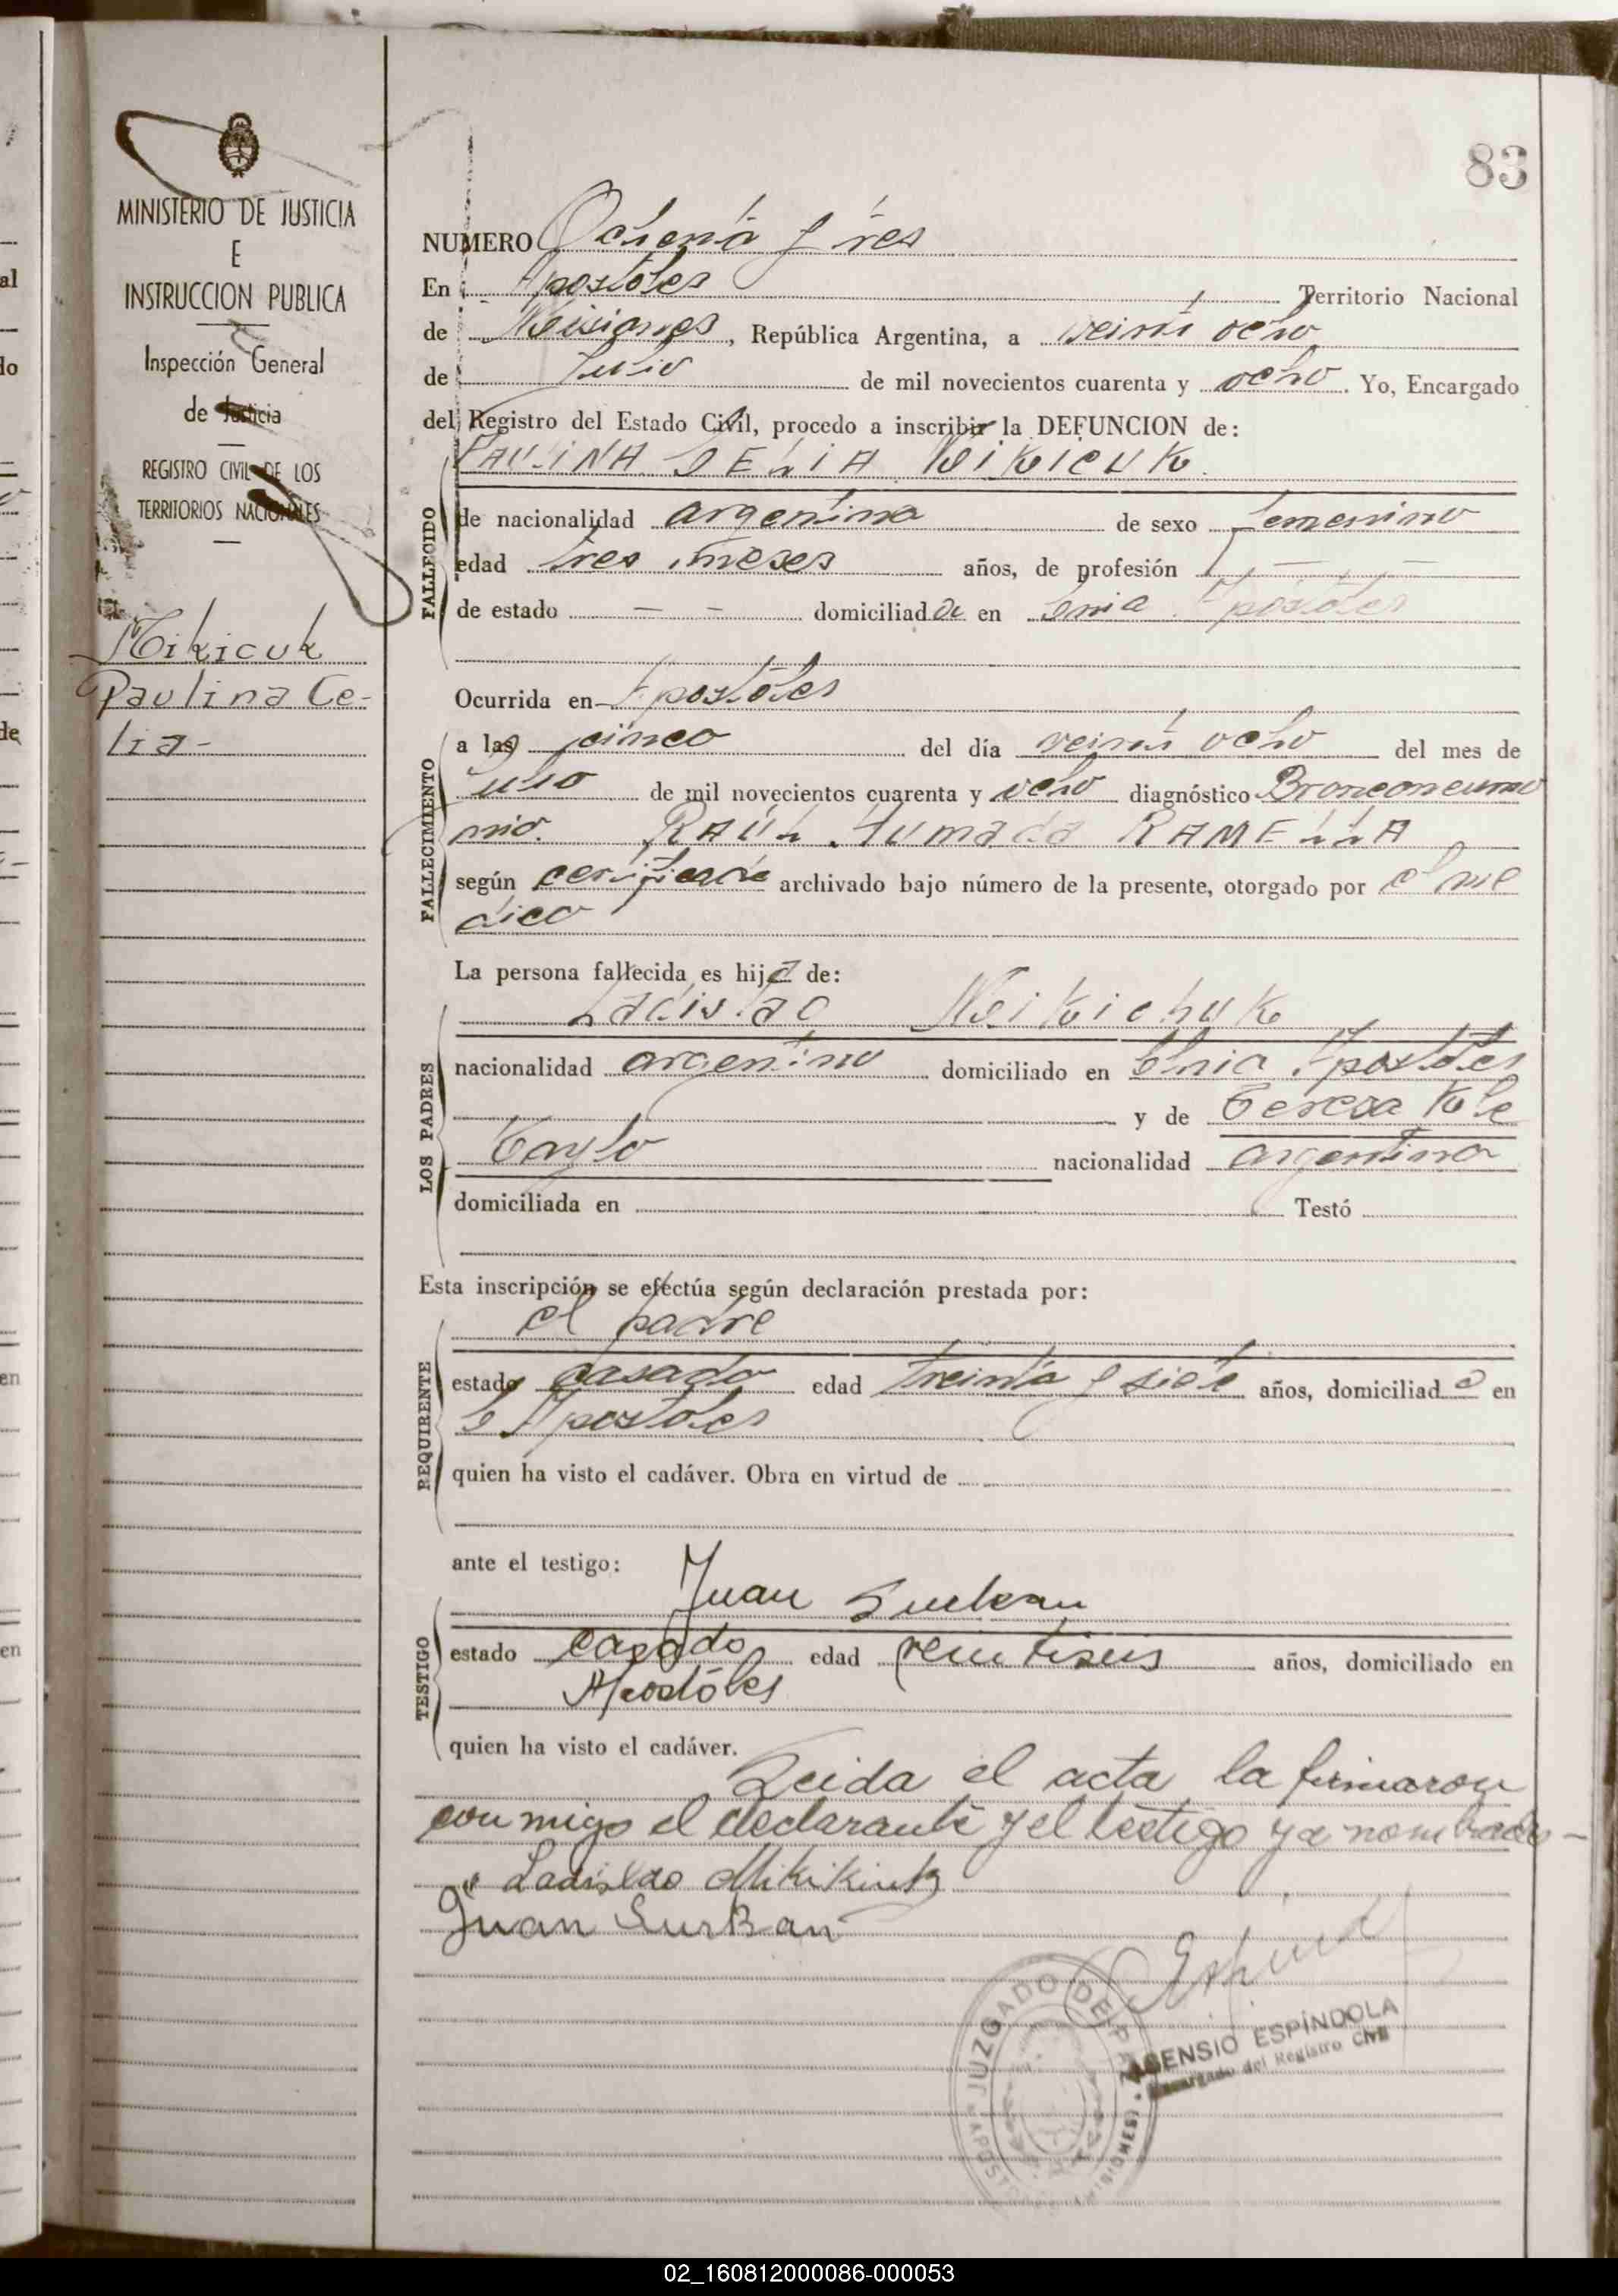 83
MINISTERIO DE JUSTICIA
E
INSTRUCCION PUBLICA
Inspección General
de Justicia
REGISTRO CIVIL DE LOS
TERRITORIOS NACIONALES
Mikicuk
Paulina Ce-
lia-
NUMERO Ochenta y tres
En Apostoles Territorio Nacional
de Misiones, República Argentina, a veinti ocho
de Julio de mil novecientos cuarenta y ocho. Yo, Encargado
del Registro del Estado Civil, procedo a inscribir la DEFUNCION de:
PAULINA SELIA Mikicuk
FALLECIDO
de nacionalidad argentina de sexo femenino
edad tres meses años, de profesión — —
de estado — — domiciliada en Cnia Apostoles
FALLECIMIENTO
Ocurrida en Apostoles
a las cinco del día veinti ocho del mes de
Julio de mil novecientos cuarenta y ocho diagnóstico Bronconeumo
nia. RAUL Ahumada RAMELLA
según certificado archivado bajo número de la presente, otorgado por el me
dico
La persona fallecida es hija de:
LOS PADRES
Ladislao Mikichuk
nacionalidad argentino domiciliado en Cnia Apostoles
y de Teresa Kole
nacionalidad argentina
domiciliada en Testó
Esta inscripción se efectúa según declaración prestada por:
REQUIRENTE
el padre
estado casado edad treinta y siete años, domiciliado en
C Apostoles
quien ha visto el cadáver. Obra en virtud de
ante el testigo:
TESTIGO
Juan
estado casado edad veintiseis años, domiciliado en
Apostóles
quien ha visto el cadáver.
Leida el acta la firmaron
conmigo el declarante y el testigo ya nombrados -
Ladislao Mikikiuk
Juan Surkan
JUZGADO DE P
APOSTO (MISIONES)
ASENSIO ESPÍNDOLA
Encargado del Registro Civil
02_160812000086-000053